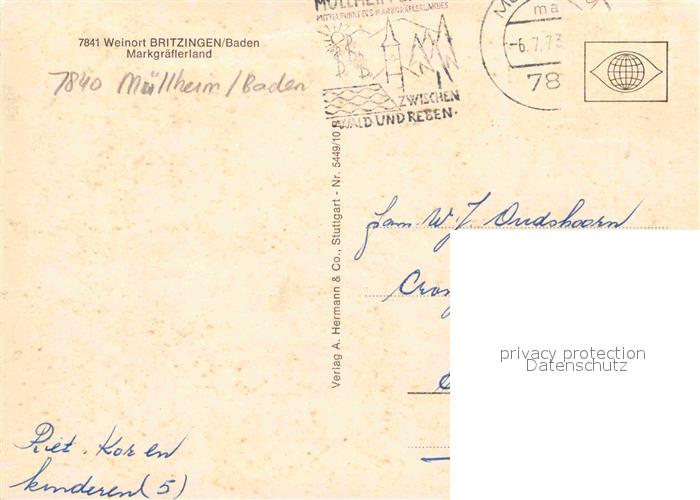 7841 Weinort BRITZINGEN/Baden
Markgräflerland
7840 Müllheim/Baden
MÜLLHEIM
MITTELPUNKT DES MARKGRÄFLERLANDES
ZWISCHEN
WALD UND REBEN.
ma
-6.7.73
78
Verlag A. Hermann & Co., Stuttgart - Nr. 5449/10
Fam. W. J. Oudshoorn
privacy protection
Datenschutz
Riet. Kor en
kinderen (5)